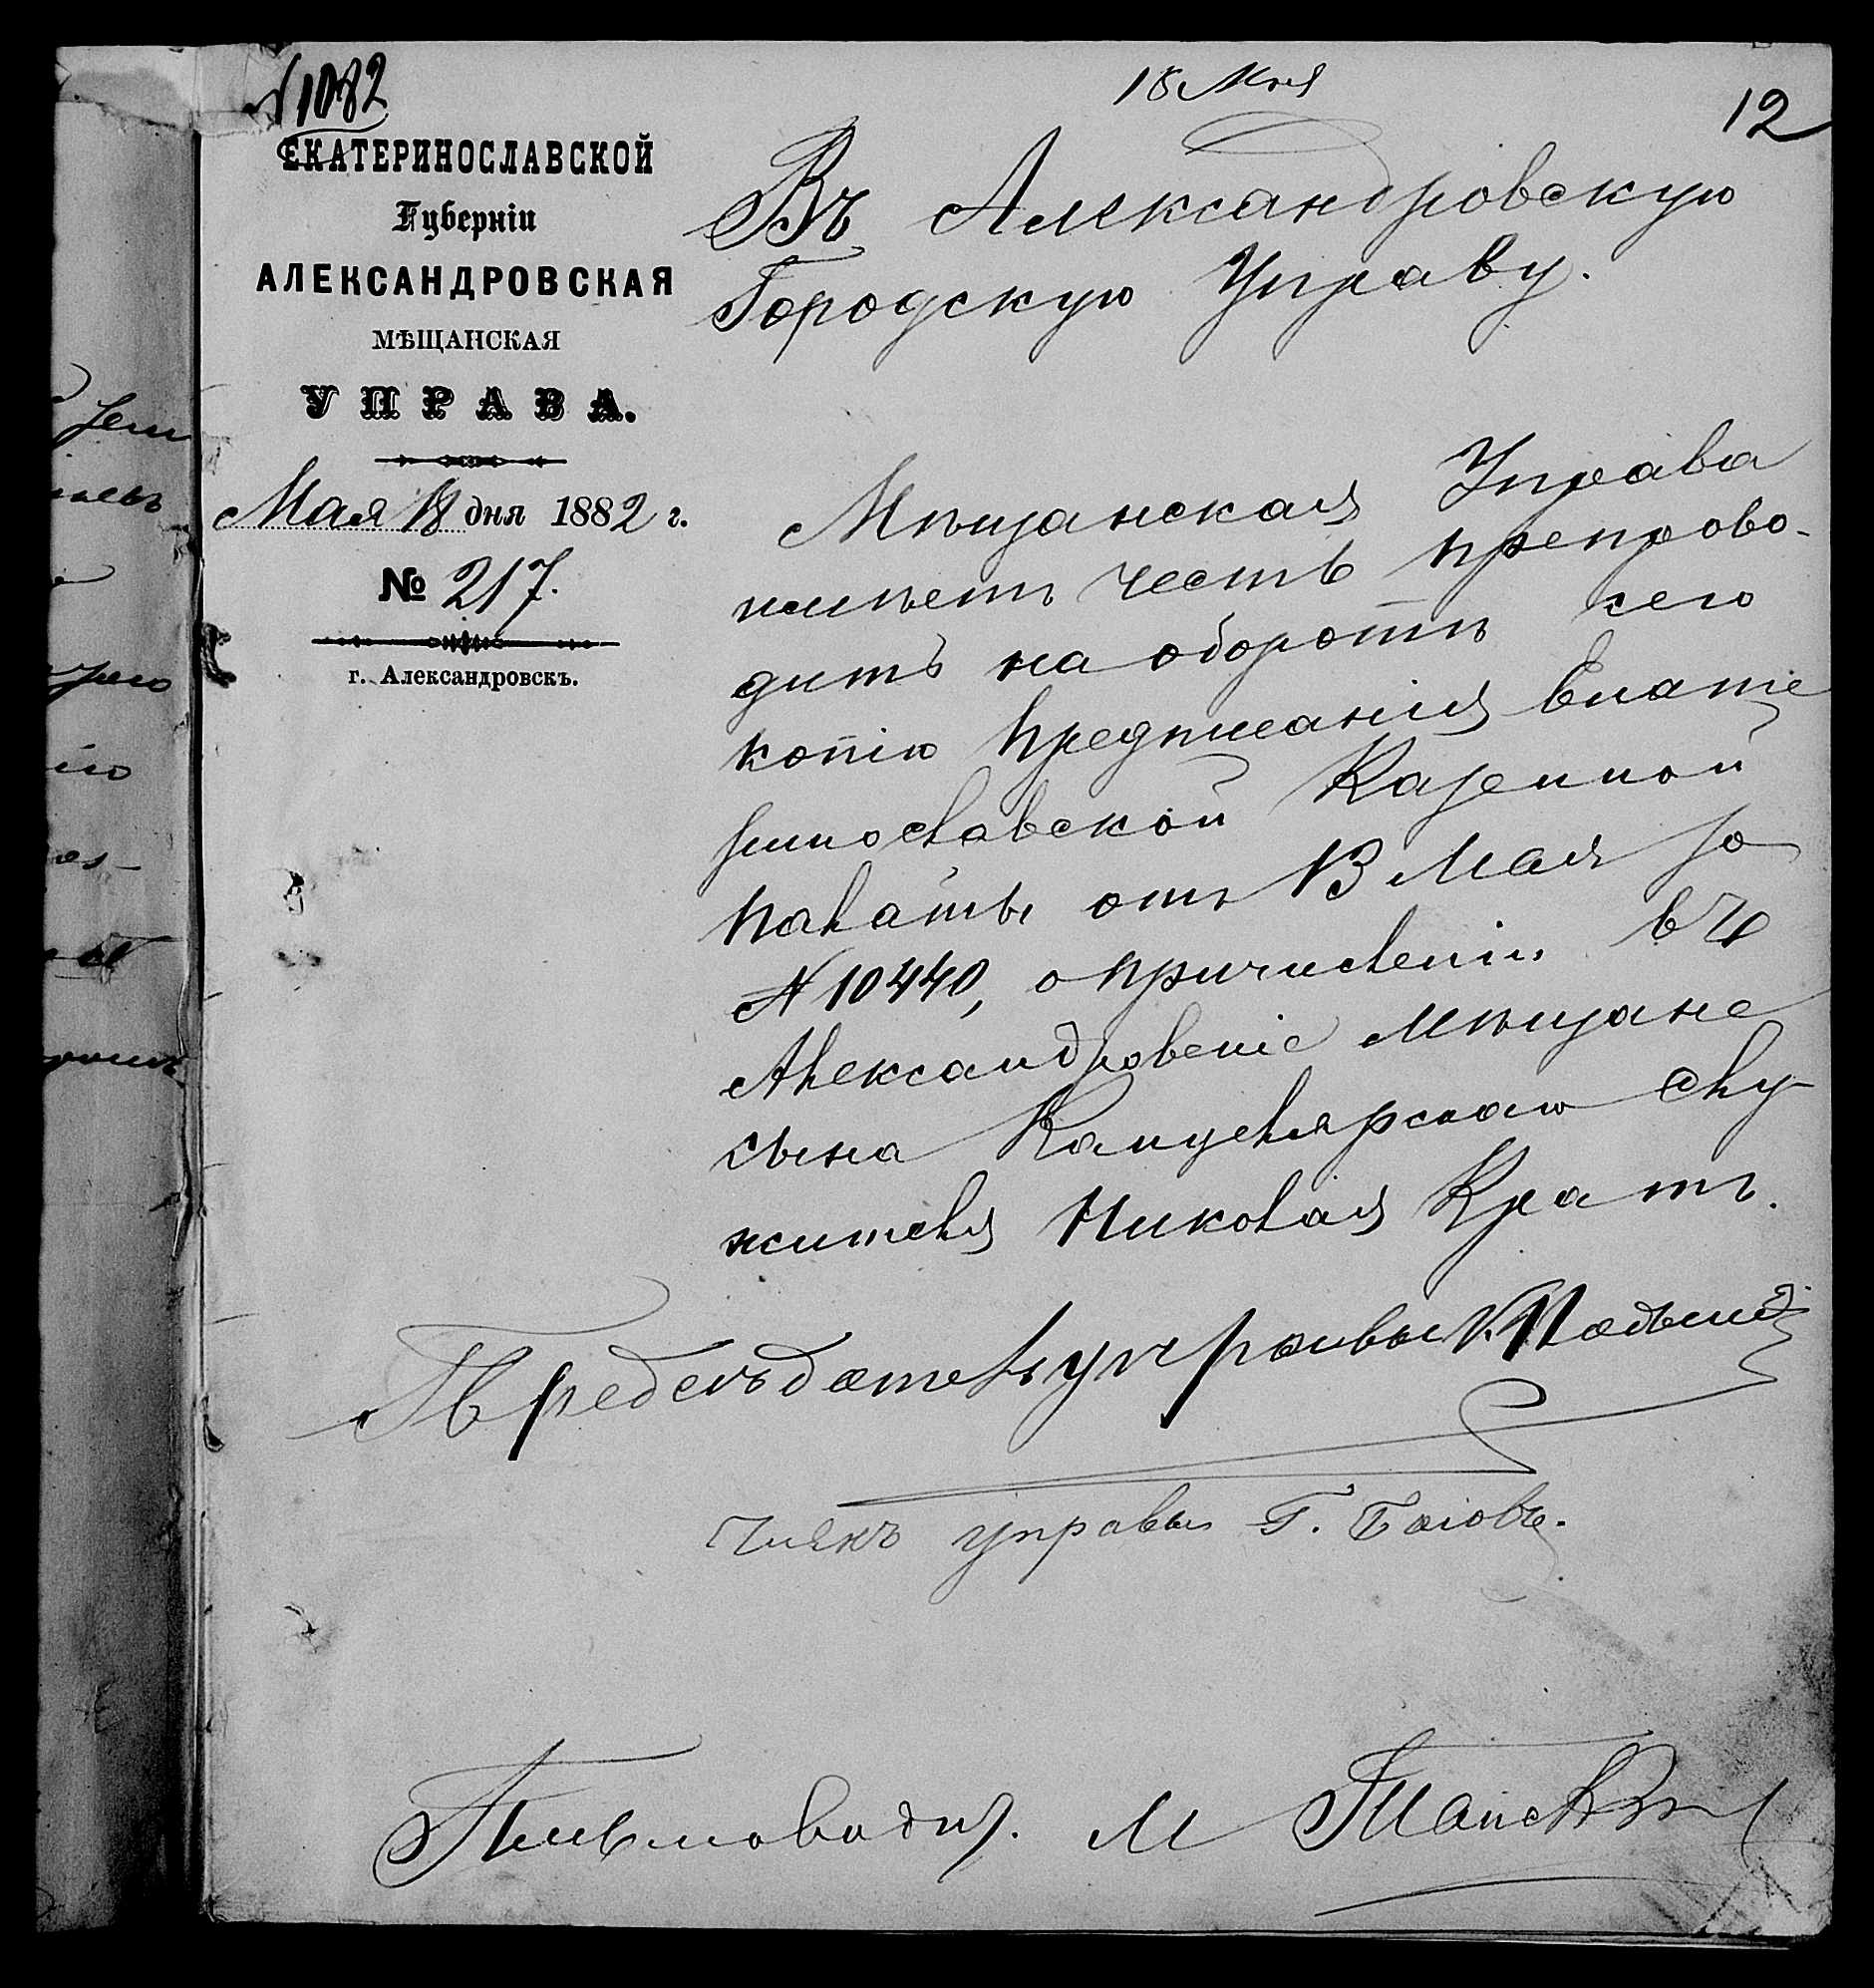 № 1082
18 Мая
12
ЕКАТЕРИНОСЛАВСКОЙ
Губерніи
АЛЕКСАНДРОВСКАЯ
МѢЩАНСКАЯ
УПРАВА.
Мая 18 дня 1882 г.
№ 217.
г. Александровскъ.
Въ Александровскую
Городскую Управу.
Мѣщанская Управа
имѣетъ честь препрово-
дить на оборотѣ сего
копію предписанія Екате
ринославской Казенной
Палаты отъ 13 Мая за
№ 10440, о причисленіи въ
Александровскіе мѣщане
сына Канцелярскаго слу-
жителя Николая Кратъ.
Председатель управы
Членъ управы Г.
Письмовод. М